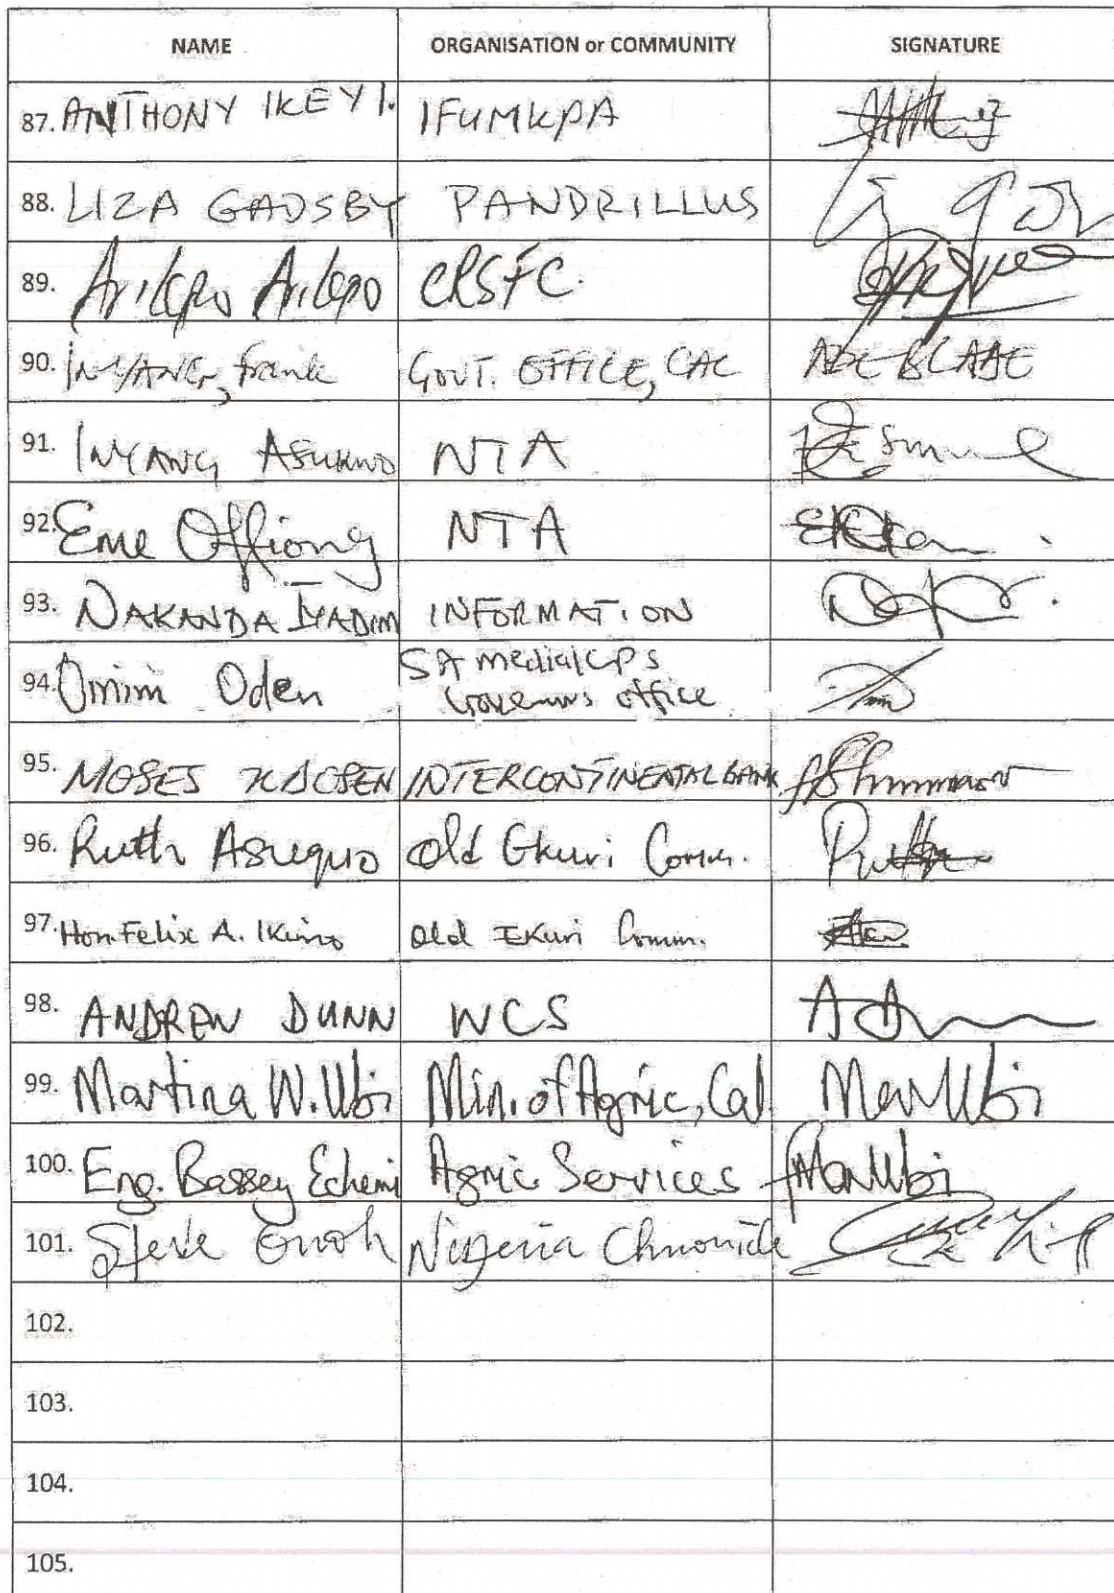 NAME ORGANISATION or COMMUNITY SIGNATURE
87. ANTHONY IKEYI. IFUMKPA
88. LIZA GADSBY PANDRILLUS
89. CRSFC.
90. INYANG, Frank GOVT. OFFICE, CAL
91. INYANG ASUKWO NTA
92. Eme Offiong NTA
93. NAKANDA IYADIM INFORMATION
94. Omim Oden SA media/CPS
Governors office
95. MOSES INTERCONTINENTAL BANK
96. Ruth Asuquo Old Ekuri Comm.
97. Hon. Felix A. Ikuno Old Ekuri Comm.
98. ANDREW DUNN WCS
99. Martina W. Ubi Min. of Agric, Cal. MarUbi
100. Eng. Bassey Echemi Agric Services MarUbi
101. Steve Nigeria Chronicle
102.
103.
104.
105.